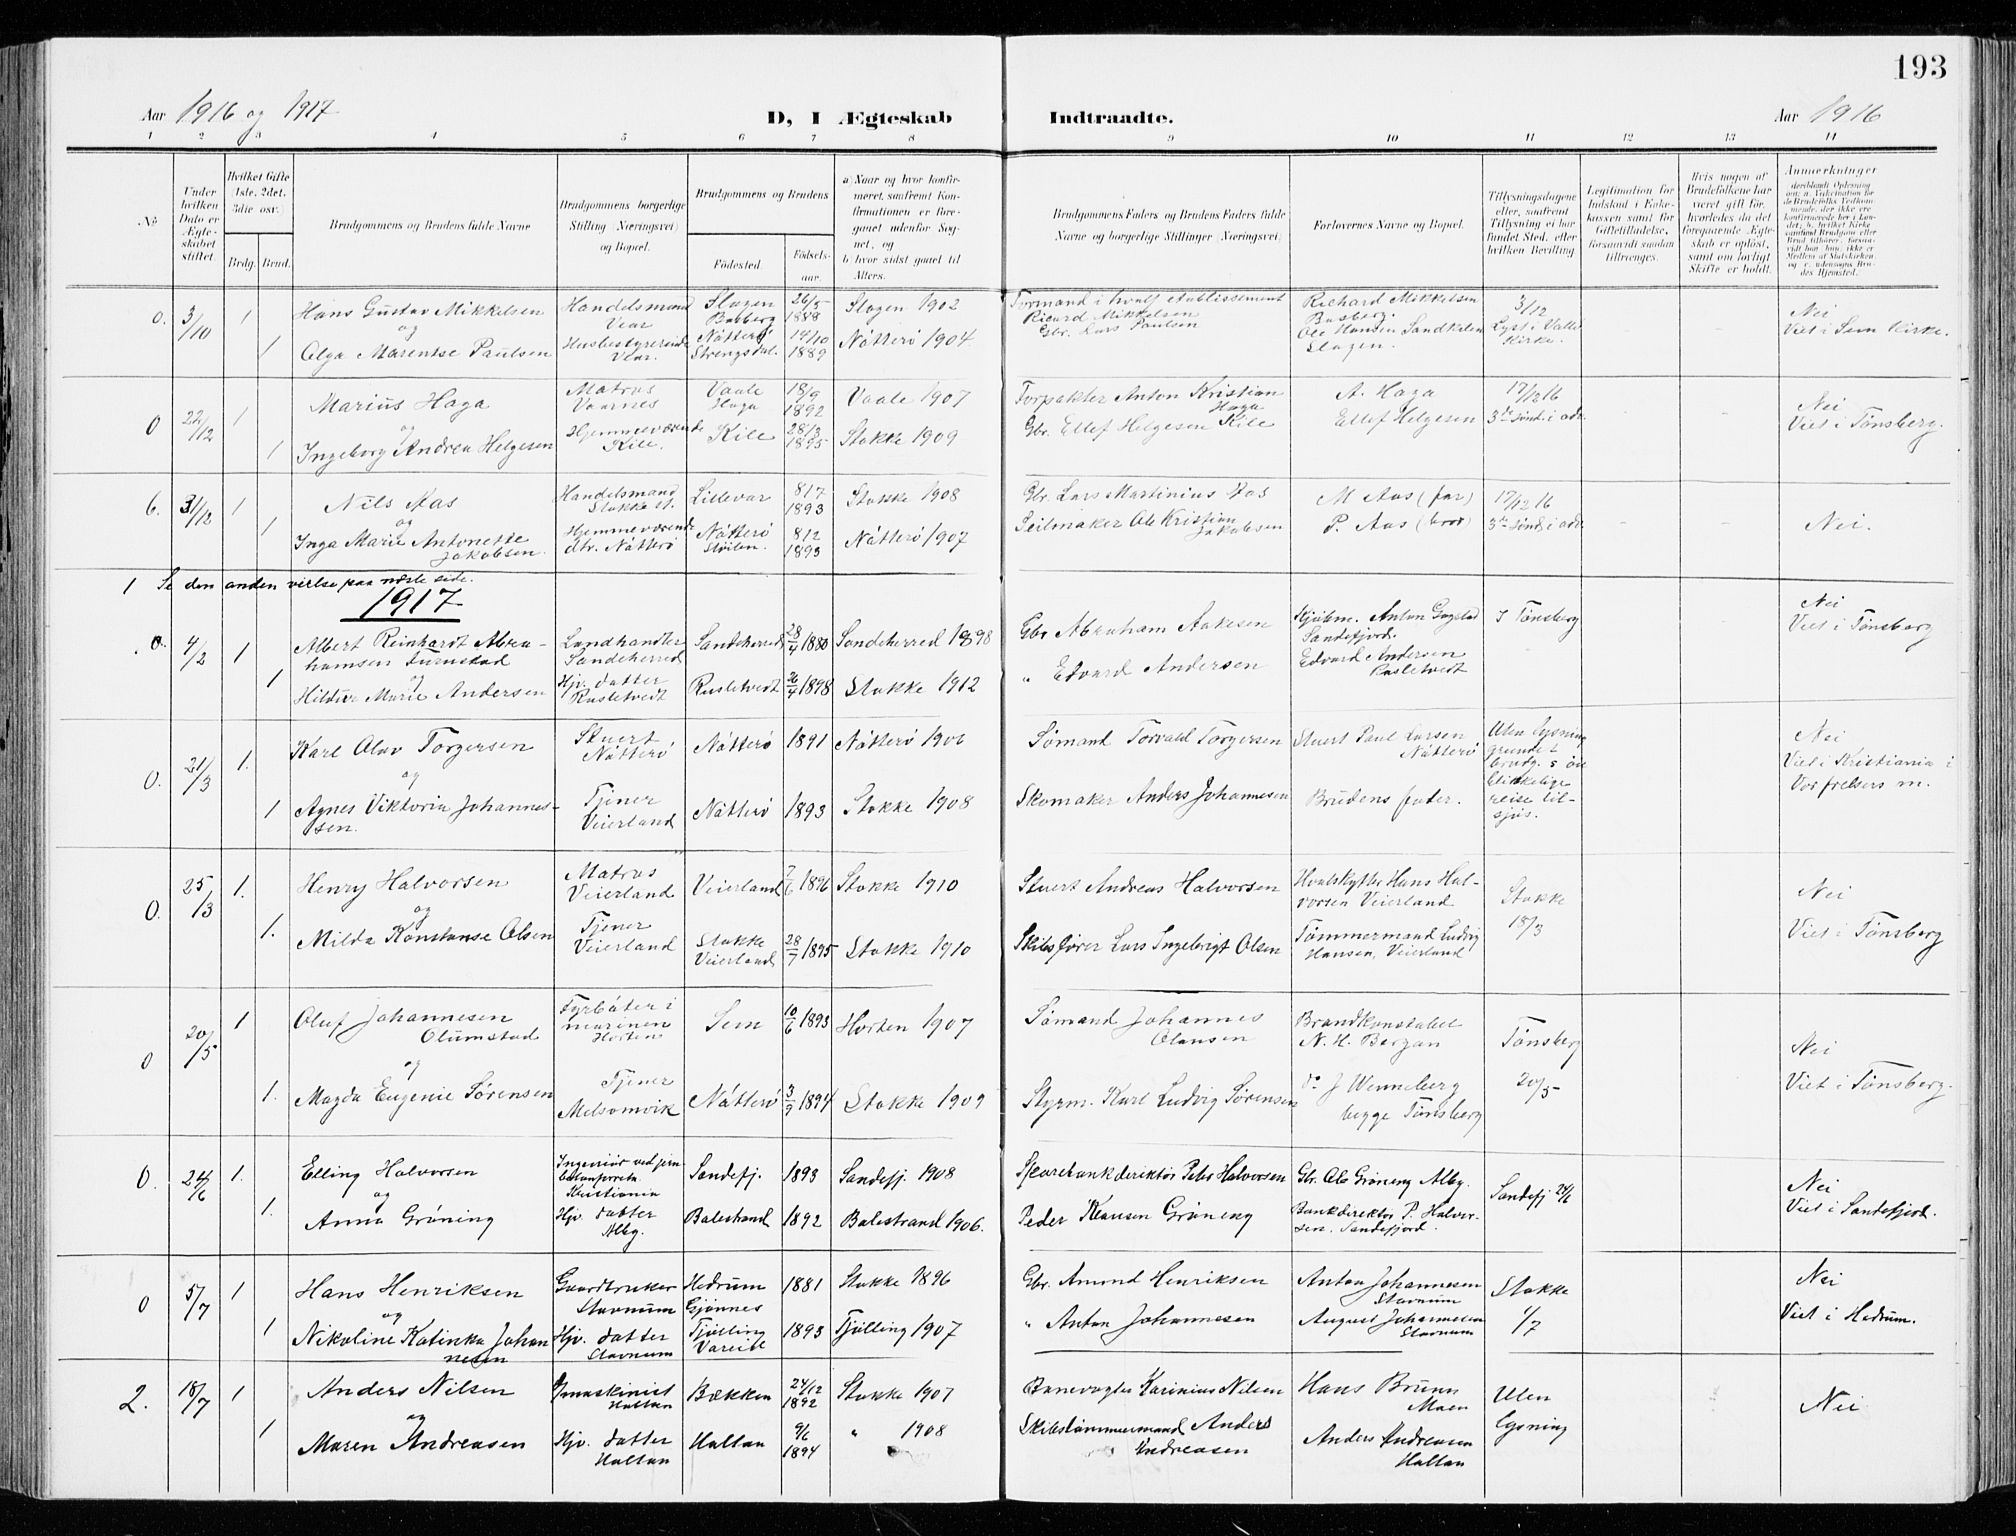 193
Aar 1916 og 1917
D, I Ægteskab Indtraadte.
Aar 1916
1 2 3 4 5 6 7 8 9 10 11 12 13 14
No
Under hvilken Dato er Ægteskabet stiftet.
Hvilket Gifte (1ste, 2det, 3die osv.)
Brdg. Brud.
Brudgommens og Brudens fulde Navne
Brudgommens borgerlige Stilling (Næringsvei) og Bopæl.
Brudgommens og Brudens
Fødested. Fødselsaar.
a) Naar og hvor konfirmeret, saafremt Konfirmationen er foregaaet udenfor Sognet, og
b) hvor sidst gaaet til Alters.
Brudgommens Faders og Brudens Faders fulde Navne og borgerlige Stillinger (Næringsvei)
Forlovernes Navne og Bopæl.
Tillysningsdagene eller, saafremt Tillysning ei har fundet Sted, efter hvilken Bevilling
Legitimation for Indskud i Enkekassen samt for Giftetilladelse, forsaavidt saadan tiltrænges.
Hvis nogen af Brudefolkene har været gift før, hvorledes da det foregaaende Ægteskab er opløst, samt om lovligt Skifte er holdt.
Anmerkninger
0. 3/10 1 Hans Gustav Mikkelsen Handelsmand Vear Slagen Basberg 26/5 1888 Slagen 1902 Formand i hvalf. etablissement Ricard Mikkelsen Richard Mikkelsen Basberg. 3/12 Nei
og
1 Olga Marentse Paulsen Husbestyrerinde Vear. Nøtterø Strengsdal. 14/10 1889 Nøtterø 1904. Gbr. Lars Paulsen Ole Hansen Sandkelen Slagen. Lyst i Valle Kirke. Viet i Sem Kirke.
0 22/12 1 Marius Haga Matros Vaarnes Vaale Haga 18/9 1892 Vaale 1907 Forpakter Anton Kristian Haga A. Haga 17/12 16 Nei
og
1 Ingeborg Andrea Helgesen Hjemmeværende Kile. Kile 28/3 1895 Stokke 1909 Gbr. Ellef Helgesen Kile Ellef Helgesen 3de sønd. i adv. Viet i Tønsberg.
6. 31/12 1 Nils Aas Handelsmand Stokke st. Lillevar 8/7 1893 Stokke 1908 Gbr. Lars Martinius Aas M Aas (far) 17/12 16
og
1 Inga Marie Antonette Jakobsen. Hjemmeværende dtr. Nøtterø Nøtterø 8/2 1893 Nøtterø 1907 Seilmaker Ole Kristian Jakobsen P. Aas (bror) 3de sønd. i adv. Nei.
1 Se den anden vielse paa næste side.
1917
0. 4/2 1 Albert Reinhardt Abrahamsen Furustad Landhandler Sandeherred Sandeherred 28/4 1880 Sandeherred 1898 Gbr Abraham Aakesen Kjøbm. Anton Gogstad Sandefjord. I Tønsberg Nei
og
1 Hildur Marie Andersen Hjv. datter Rasletvedt Rasletvedt 26/4 1898 Stokke 1912 " Edvard Andersen Edvard Andersen Rasletvedt Viet i Tønsberg
0. 21/3 1. Karl Olav Torgersen Stuert Nøtterø Nøtterø 1891 Nøtterø 1906 Sømand Torvald Torgersen Stuert Paul Larsen Nøtterø Uten lysning grundet brudg.s øieblikkelige reise tilsjøs. Nei
og
1 Agnes Viktoria Johannessen. Tjener Veierland Nøtterø 1893 Stokke 1908 Skomaker Anders Johannesen Brudens fader. Viet i Kristiania i Vor frelsers m.
0. 25/3 1. Henry Halvorsen Matros Veierland Veierland 7/6 1896 Stokke 1910 Stuert Andreas Halvorsen Hvalskytter Hans Halvorsen Veierland Stokke Nei
og
1. Milda Konstanse Olsen Tjener Veierland Stokke Veierland 28/7 1895 Stokke 1910 Skibsfører Lars Ingebrigt Olsen Tømmermand Ludvig Hansen, Veierland 18/3 Viet i Tønsberg
0 20/5 1 Oluf Johannesen Olumstad Fyrbøter i marinen Horten Sem 10/6 1893 Horten 1907 Sømand Johannes Olausen Brandkonstabel N. H. Bergan Tønsberg Nei
og
1. Magda Eugenie Sørensen Tjener Melsomvik Nøtterø 3/9 1894 Stokke 1909 Styrm. Karl Ludvig Sørensen do J Wenneberg begge Tønsberg 20/5 Viet i Tønsberg.
0. 24/6 1. Elling Halvorsen Ingeniør ved Kristiania Sandefj. 1893 Sandefj. 1908 Sparebankdirektør Peter Halvorsen Gbr. Ole Grøning Alby. Sandefj 24/6 Nei
og
1. Anna Grøning Hjv. datter Alby. Balestrand 1892 Balestrand 1906. Peder Klausen Grøning Bankdirektør P. Halvorsen. Sandefjord. Viet i Sandefjord.
0 5/7 1 Hans Henriksen Gaardbruker Stavnum Hedrum Gjønnes 1881 Stokke 1896 Gbr. Amund Henriksen Anton Johannesen Stavnum Stokke Nei
og
1 Nikoline Katinka Johannesen Hjv. datter Stavnum Tjølling 1893 Tjølling 1907 " Anton Johannesen August Johannesen Stavnum 1/7 Viet i Hedrum.
2. 18/7 1 Anders Nilsen maskinist Haltan Bækken 24/12 1892 Stokke 1907 Banevogter Karinius Nilsen Hans Bruun Moen Uten Nei
og
1 Maren Andreasen Hjv. datter Haltan Haltan 9/6 1894 " 1908 Skibstømmermand Anders Andreasen Anders Andreasen Haltan lysning